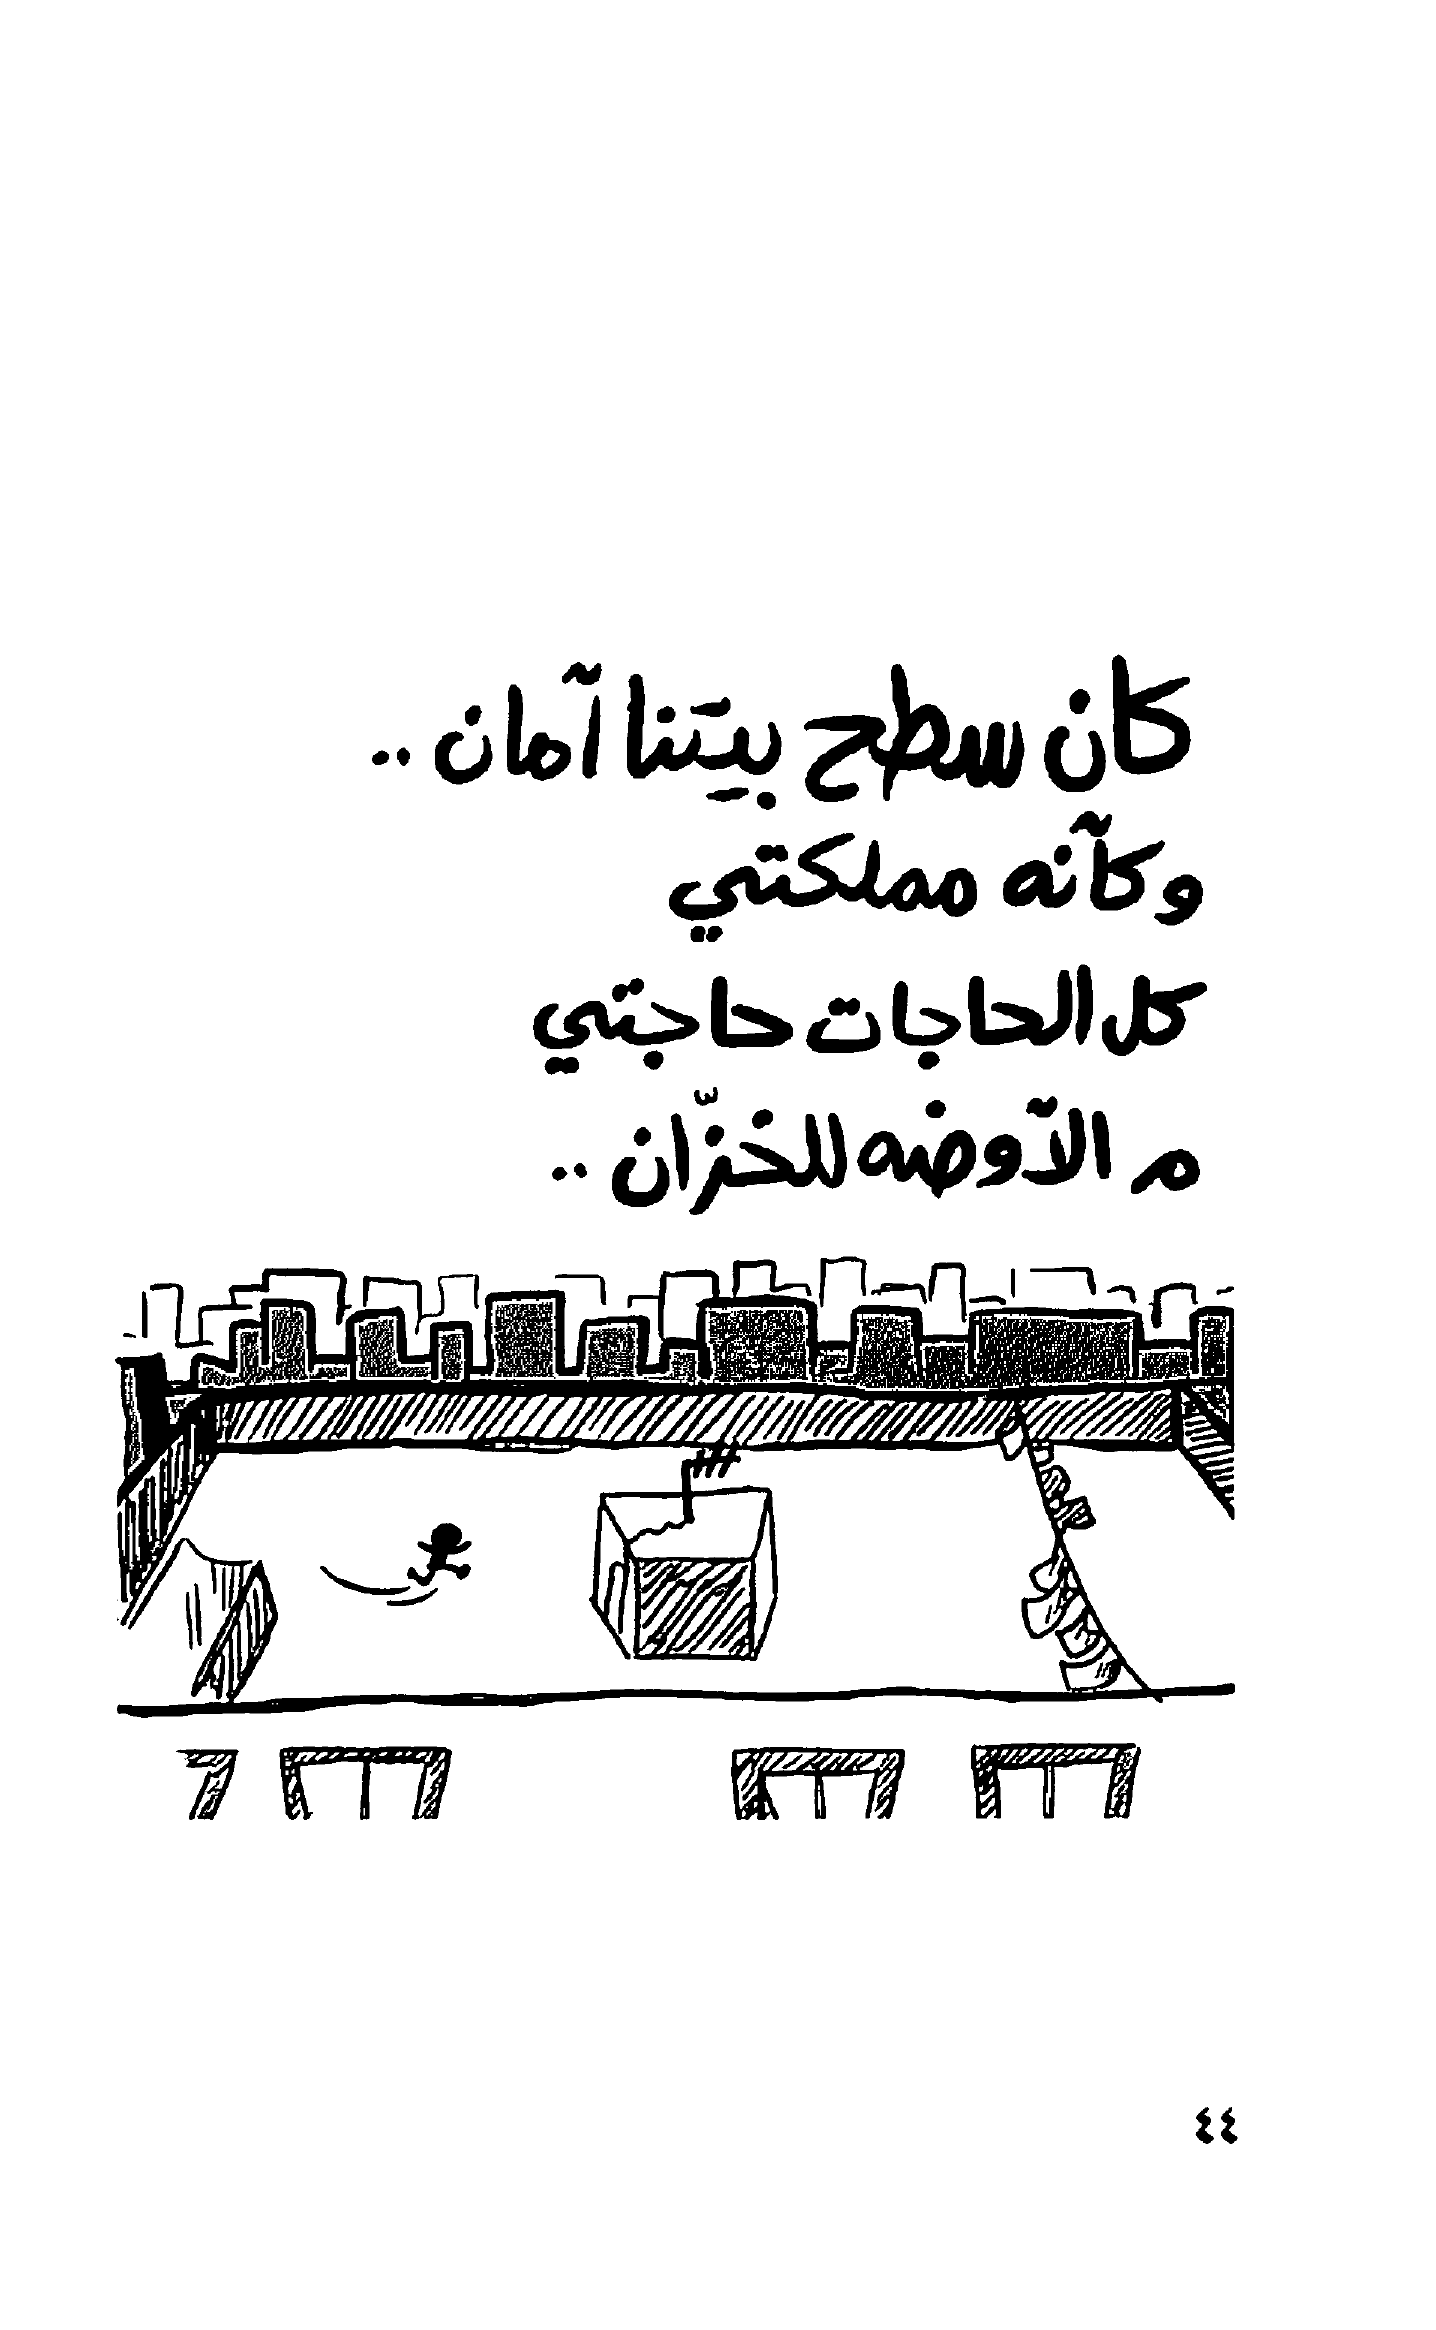 كان سطح بيتنا آمان ..
وكآنه مملكتي
كل الحاجات حاجتي
م الآوضه للخزّان ..
٤٤